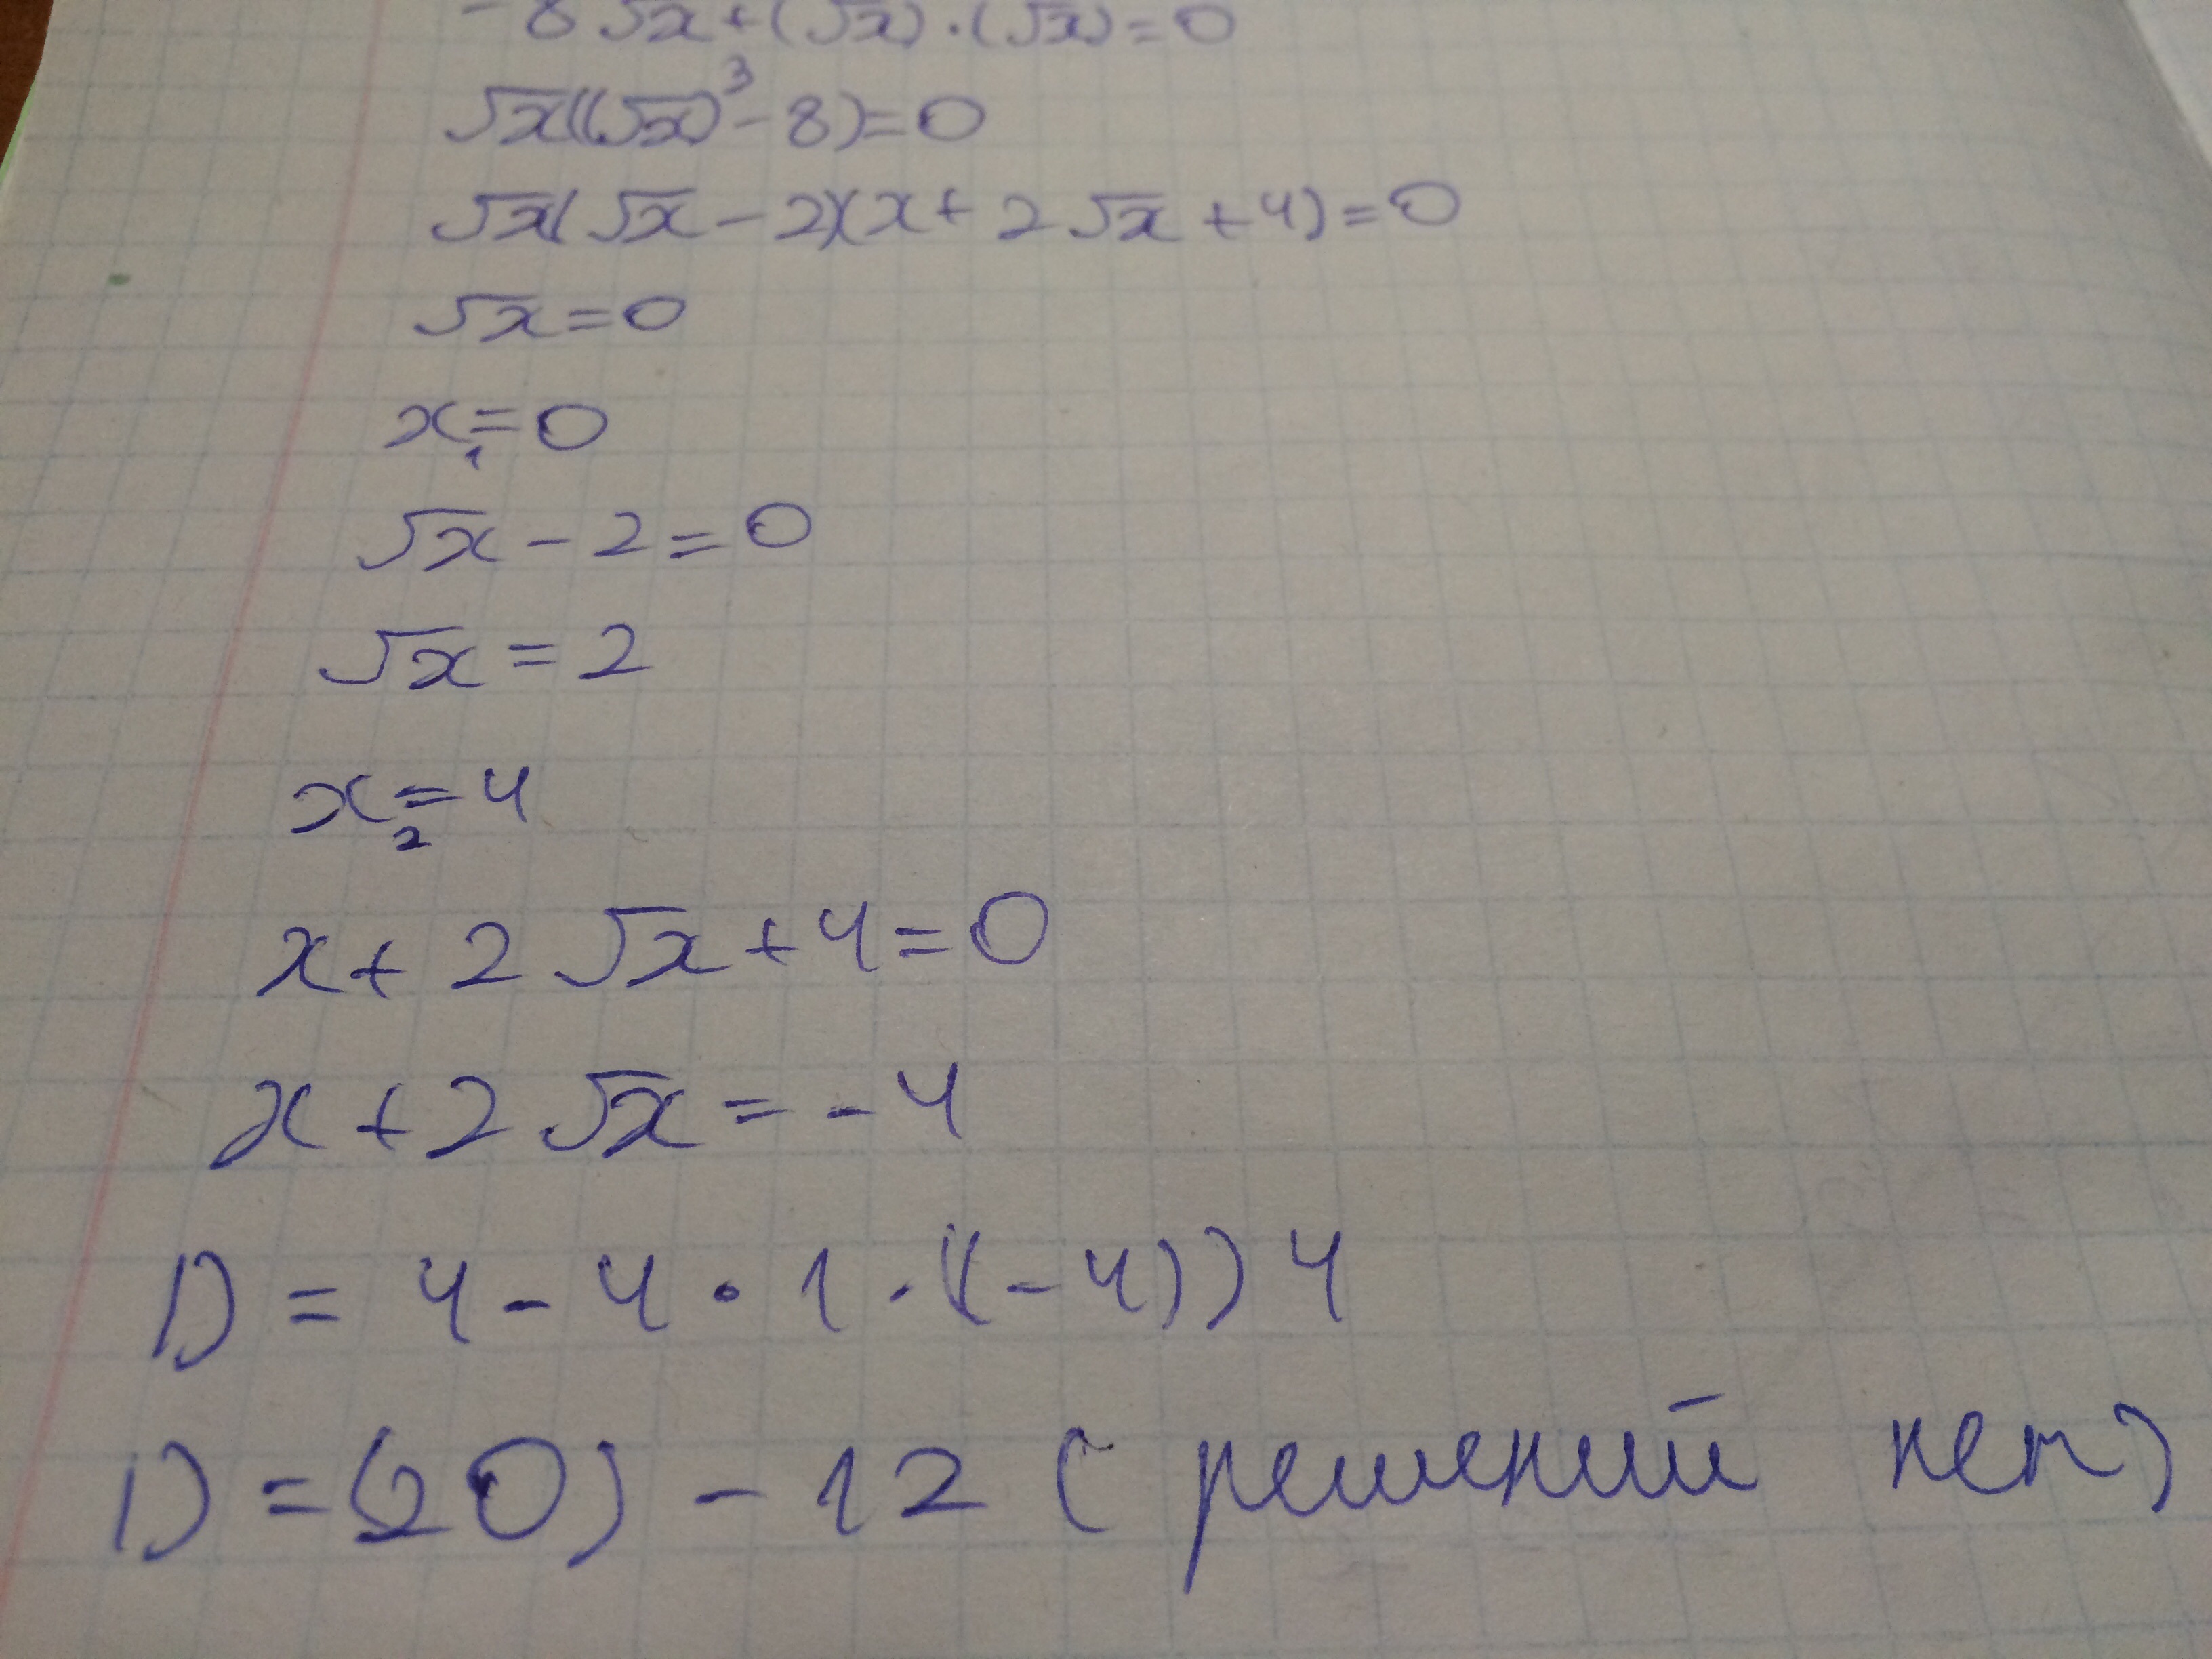 -8√x+(√x)·(√x)=0
√x((√x)³-8)=0
√x(√x-2)(x+2√x+4)=0
√x=0
x₁=0
√x-2=0
√x=2
x₂=4
x+2√x+4=0
x+2√x=-4
D=4-4·1·((-4))4
D=(20)-12 (решений нет)